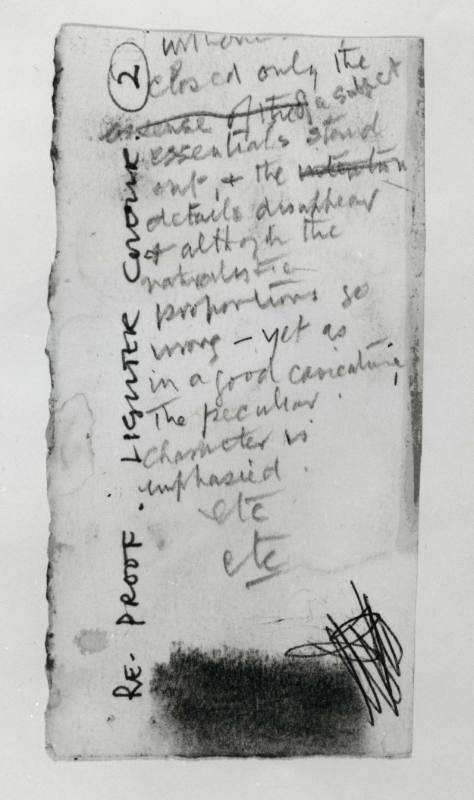 2
closed only the
essense of the of a subject
essentials stand
out, & the intention
details disappear
& although the
naturalistic
proportions go
wrong – yet as
in a good caricature,
the peculiar
character is
emphasied.
etc
etc
RE- PROOF. LIGHTER COLOUR.